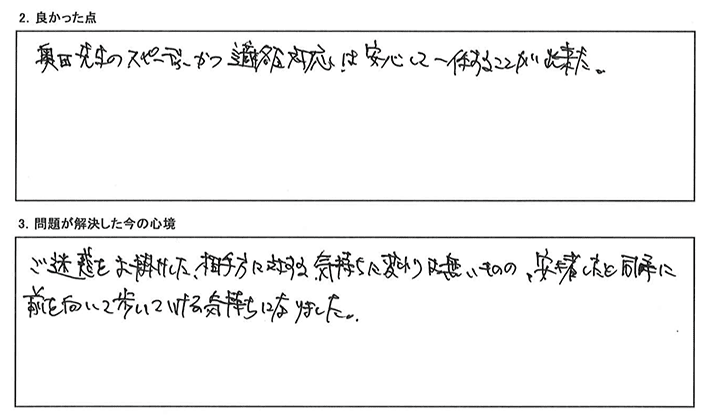 2. 良かった点
奥田先生のスピーディーかつ適確な対応は安心して一任することが出来た。
3. 問題が解決した今の心境
ご迷惑をお掛けした相手方に対する気持ちに変わりは無いものの、安堵したと同時に
前を向いて歩いていける気持ちになりました。